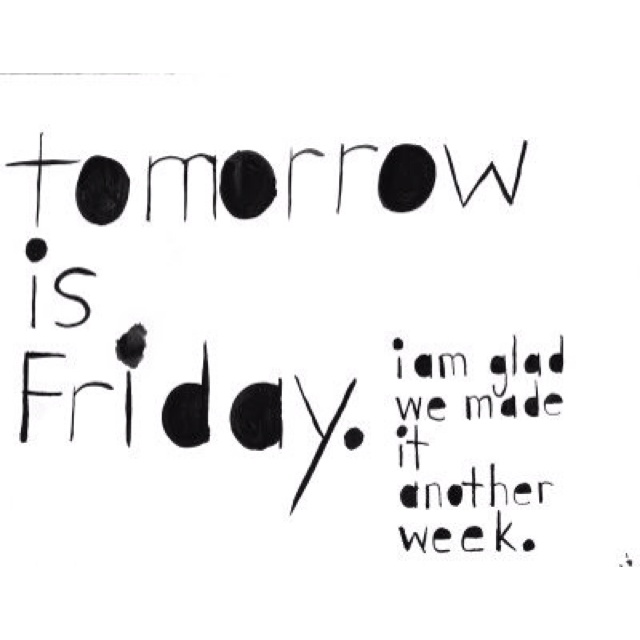 tomorrow
is
Friday.
i am glad
we made
it
another
week.